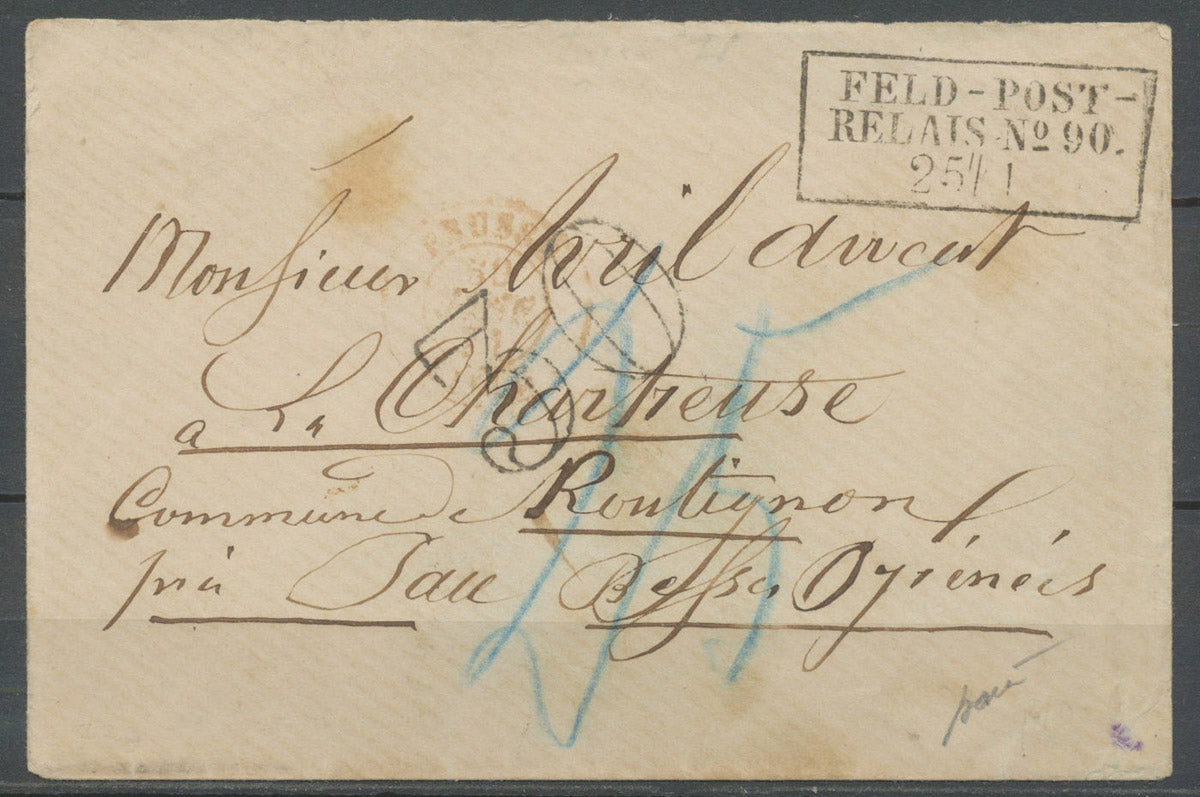 FELD-POST-
RELAIS No 90.
25/1
Monsieur Avril avocat
a La Chartreuse
Commune de Routignon
près Pau Basses Pyrénées
25